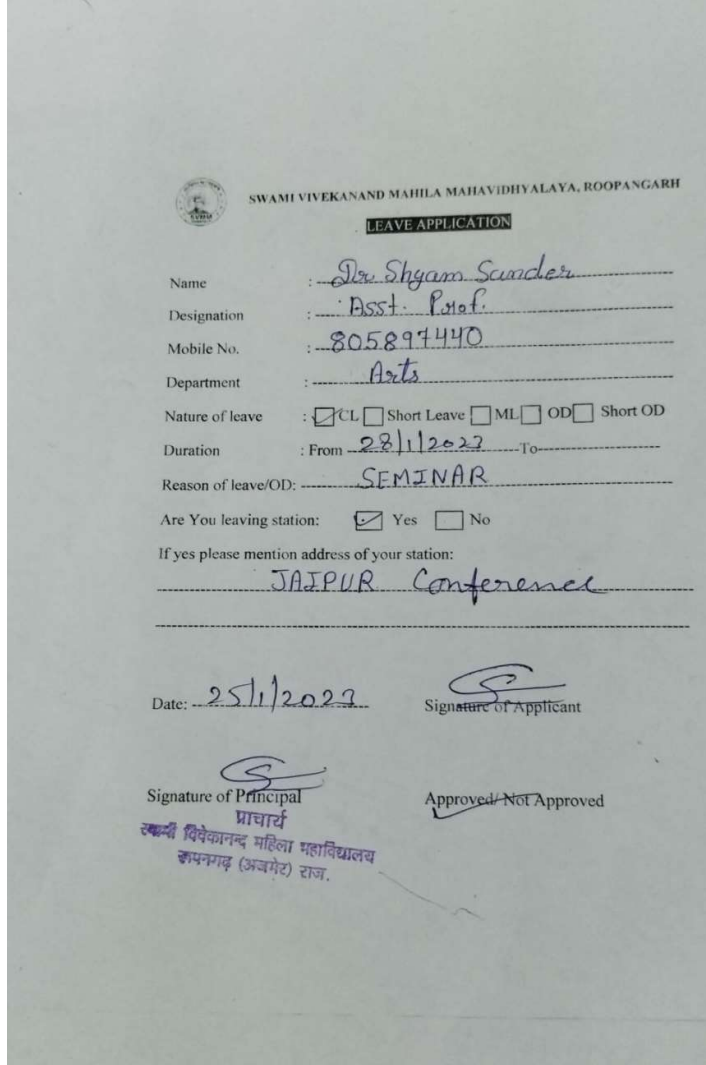 SWAMI VIVEKANAND MAHILA MAHAVIDHYALAYA, ROOPANGARH
LEAVE APPLICATION
Name : Dr Shyam Sunder
Designation : Asst. Prof.
Mobile No. : 805897440
Department : Arts
Nature of leave : CL Short Leave ML OD Short OD
Duration : From 28/1/2023 To
Reason of leave/OD: SEMINAR
Are You leaving station: Yes No
If yes please mention address of your station:
JAIPUR Conference
Date: 25/1/2023 Signature of Applicant
Signature of Principal Approved/ Not Approved
प्राचार्य
स्वामी विवेकानन्द महिला महाविद्यालय
रूपनगढ़ (अजमेर) राज.